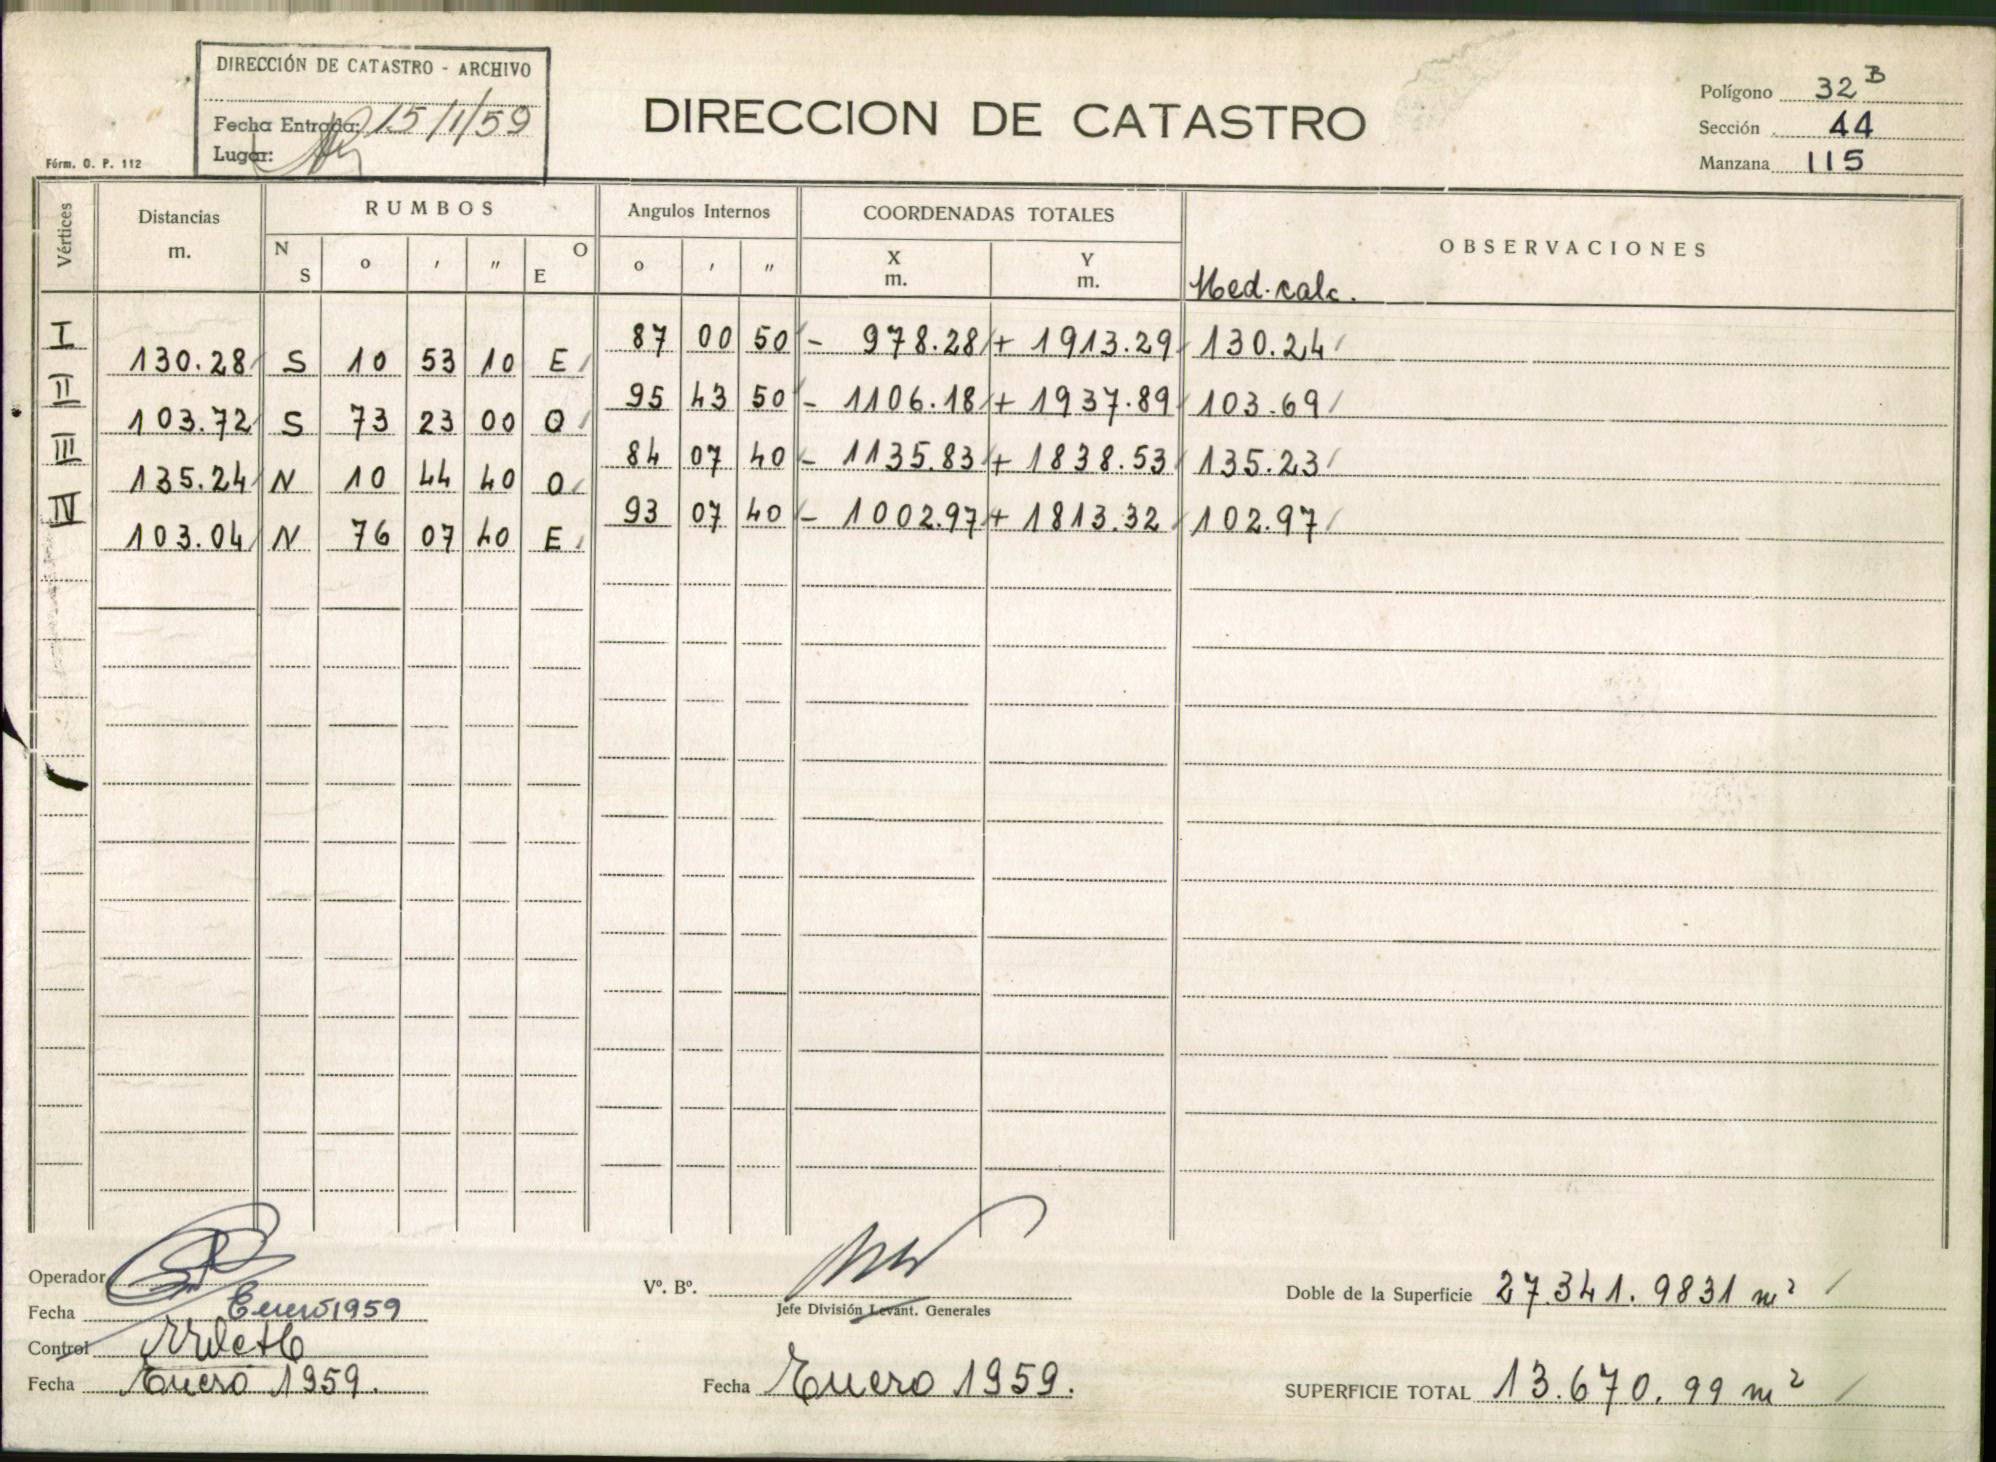 DIRECCIÓN DE CATASTRO - ARCHIVO
Fecha Entrada: 15/1/59
Lugar:
Fórm. O. P. 112
DIRECCION DE CATASTRO
Polígono 32 B
Sección 44
Manzana 115
Vértices Distancias m. RUMBOS Angulos Internos COORDENADAS TOTALES OBSERVACIONES
N S o ' " E O o ' " X m. Y m. Med. calc.
I 87 00 50 - 978.28 + 1913.29 130.24
130.28 S 10 53 10 E
II 95 43 50 - 1106.18 + 1937.89 103.69
103.72 S 73 23 00 O
III 84 07 40 - 1135.83 + 1838.53 135.23
135.24 N 10 44 40 O
IV 93 07 40 - 1002.97 + 1813.32 102.97
103.04 N 76 07 40 E
Operador
Fecha Enero 1959
Control
Fecha Enero 1959.
Vº. Bº.
Jefe División Levant. Generales
Fecha Enero 1959.
Doble de la Superficie 27.341.9831 m²
SUPERFICIE TOTAL 13.670.99 m²